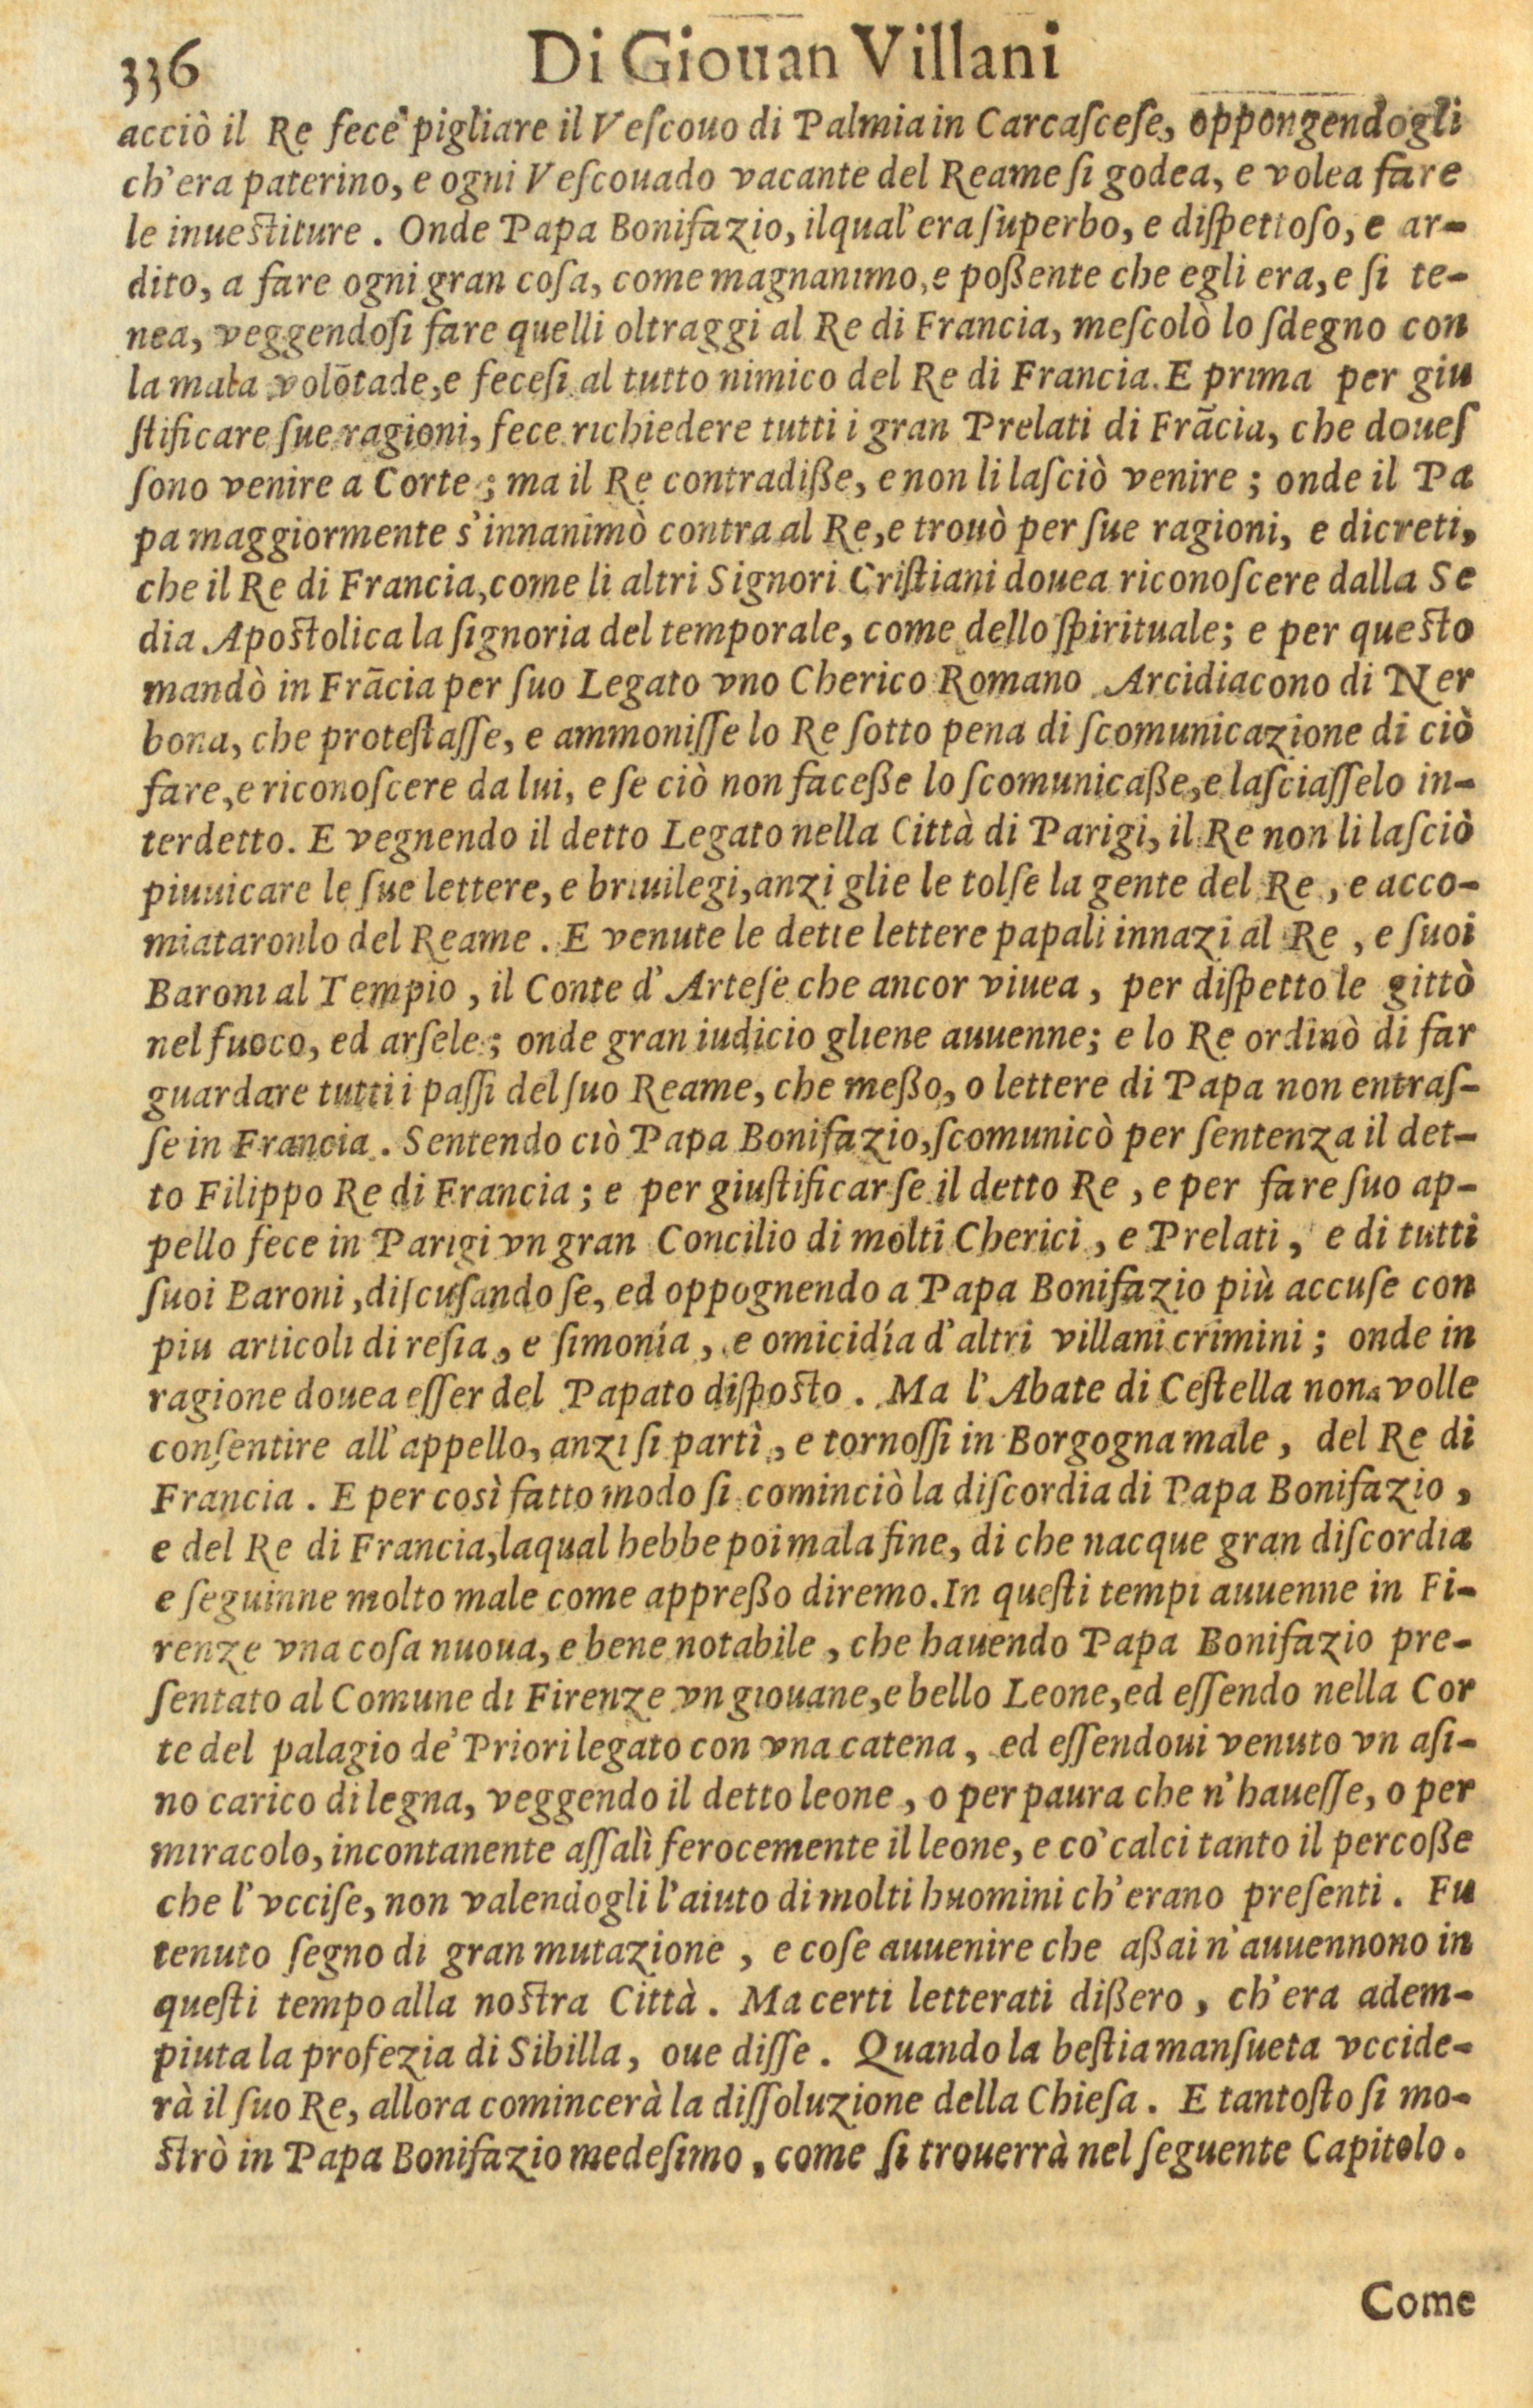 336 Di Giouan Villani
acciò il Re fece pigliare il Veſcouo di Palmia in Carcaſceſe, oppongendogli
ch'era paterino, e ogni Veſcouado vacante del Reame ſi godea, e volea fare
le inueſtiture. Onde Papa Bonifazio, ilqual' era ſuperbo, e diſpettoſo, e ar-
dito, a fare ogni gran coſa, come magnanimo, e poßente che egli era, e ſi te-
nea, veggendoſi fare quelli oltraggi al Re di Francia, meſcolò lo ſdegno con
la mala volōtade, e feceſi al tutto nimico del Re di Francia. E prima per giu
ſtificare ſue ragioni, fece richiedere tutti i gran Prelati di Frācia, che doueſ
ſono venire a Corte; ma il Re contradiße, e non li laſciò venire; onde il Pa
pa maggiormente s'innanimò contra al Re, e trouò per ſue ragioni, e dicreti,
che il Re di Francia, come li altri Signori Criſtiani douea riconoſcere dalla Se
dia Apoſtolica la ſignoria del temporale, come dello ſpirituale; e per queſto
mandò in Frācia per ſuo Legato vno Cherico Romano Arcidiacono di Ner
bona, che proteſtaſſe, e ammoniſſe lo Re ſotto pena di ſcomunicazione di ciò
fare, e riconoſcere da lui, e ſe ciò non faceße lo ſcomunicaße, e laſciaſſelo in-
terdetto. E vegnendo il detto Legato nella Città di Parigi, il Re non li laſciò
piuuicare le ſue lettere, e briuilegi, anzi glie le tolſe la gente del Re, e acco-
miataronlo del Reame. E venute le dette lettere papali innazi al Re, e ſuoi
Baroni al Tempio, il Conte d'Arteſe che ancor viuea, per diſpetto le gittò
nel fuoco, ed arſele; onde gran iudicio gliene auuenne; e lo Re ordinò di far
guardare tutti i paſſi del ſuo Reame, che meßo, o lettere di Papa non entraſ-
ſe in Francia. Sentendo ciò Papa Bonifazio, ſcomunicò per ſentenza il det-
to Filippo Re di Francia; e per giuſtificarſe il detto Re, e per fare ſuo ap-
pello fece in Parigi vn gran Concilio di molti Cherici, e Prelati, e di tutti
ſuoi Baroni, diſcuſando ſe, ed oppognendo a Papa Bonifazio più accuſe con
piu articoli di reſia, e ſimonía, e omicidía d'altri villani crimini; onde in
ragione douea eſſer del Papato diſpoſto. Ma l'Abate di Ceſtella non volle
conſentire all'appello, anzi ſi partì, e tornoſſi in Borgogna male, del Re di
Francia. E per così fatto modo ſi cominciò la diſcordia di Papa Bonifazio,
e del Re di Francia, laqual hebbe poi mala fine, di che nacque gran diſcordia
e ſeguinne molto male come appreßo diremo. In queſti tempi auuenne in Fi-
renze vna coſa nuoua, e bene notabile, che hauendo Papa Bonifazio pre-
ſentato al Comune di Firenze vn giouane, e bello Leone, ed eſſendo nella Cor
te del palagio de' Priori legato con vna catena, ed eſſendoui venuto vn aſi-
no carico di legna, veggendo il detto leone, o per paura che n'haueſſe, o per
miracolo, incontanente aſſalì ferocemente il leone, e co' calci tanto il percoße
che l'vcciſe, non valendogli l'aiuto di molti huomini ch'erano preſenti. Fu
tenuto ſegno di gran mutazione, e coſe auuenire che aßai n'auuennono in
queſti tempo alla noſtra Città. Ma certi letterati dißero, ch'era adem-
piuta la profezia di Sibilla, oue diſſe. Quando la beſtia manſueta vccide-
rà il ſuo Re, allora comincerà la diſſoluzione della Chieſa. E tantoſto ſi mo-
ſtrò in Papa Bonifazio medeſimo, come ſi trouerrà nel ſeguente Capitolo.
Come